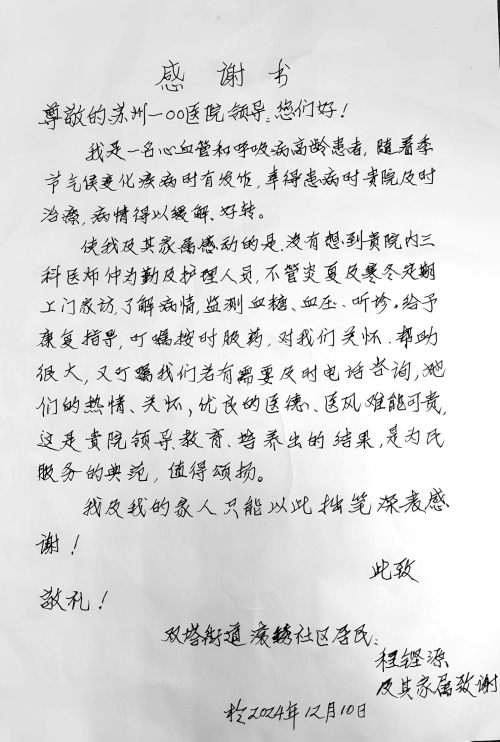 感谢书
尊敬的苏州一00医院领导:您们好!
我是一名心血管和呼吸病高龄患者,随着季
节气侯变化疾病时有发作,幸得患病时贵院及时
治疗,病情得以缓解、好转。
使我及其家属感动的是,没有想到贵院内三
科医师仲为勤及护理人员,不管炎夏及寒冬定期
上门家访,了解病情,监测血糖、血压、听诊。给予
康复指导,叮嘱按时服药,对我们关怀、帮助
很大,又叮嘱我们若有需要及时电话咨询,她
们的热情、关怀,优良的医德、医风难能可贵,
这是贵院领导教育、培养出的结果,是为民
服务的典范,值得颂扬。
我及我的家人只能以此拙笔深表感
谢!
此致
敬礼!
双塔街道滚绣社区居民:
程铿源
及其家属致谢
於2024年12月10日